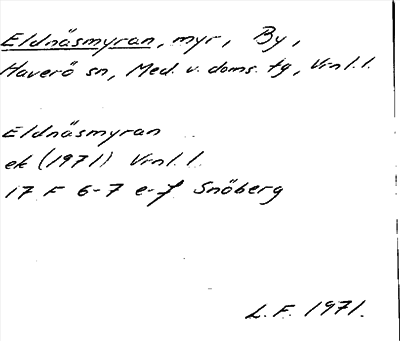 Eldnäsmyran, myr, By,
Haverö sn, Med. v. doms. tg, Vrnl. l.
Eldnäsmyran
ek (1971) Vrnl. l.
17 F 6-7 e-f Snöberg
L.F. 1971.